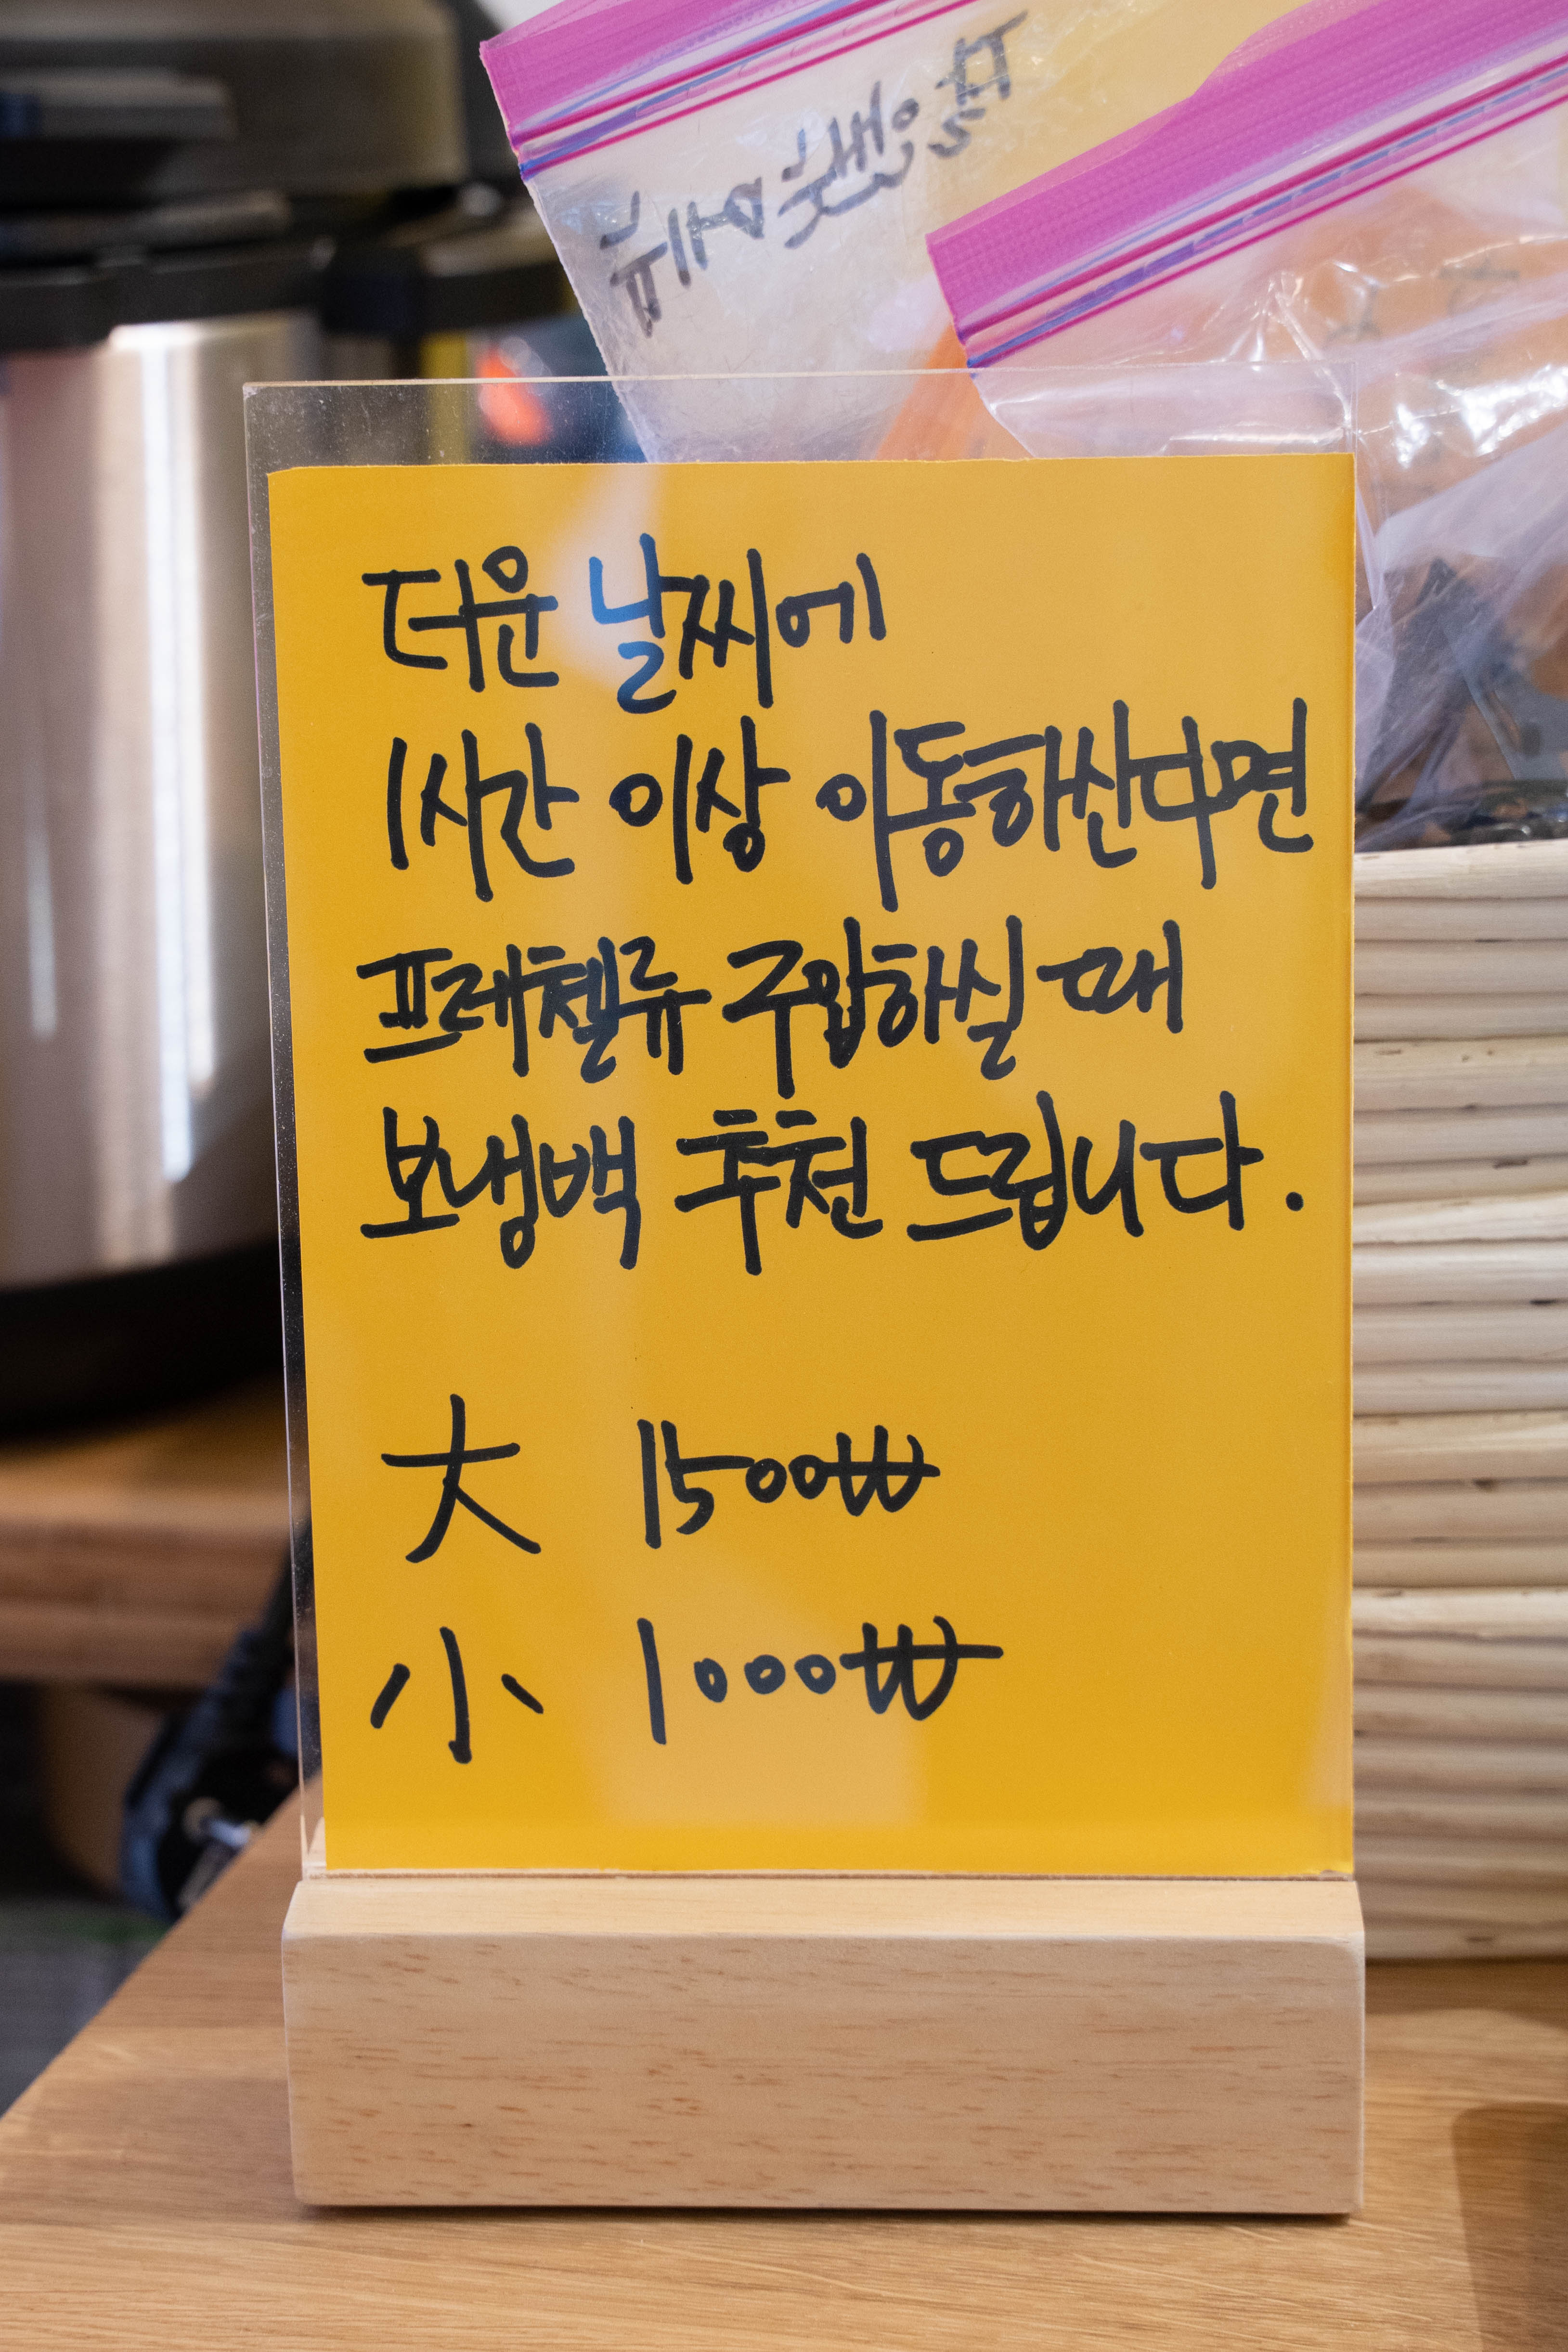 더운 날씨에
1시간 이상 이동하신다면
프레첼류 구입하실 때
보냉백 추천 드립니다.
大 1500₩
小 1000₩